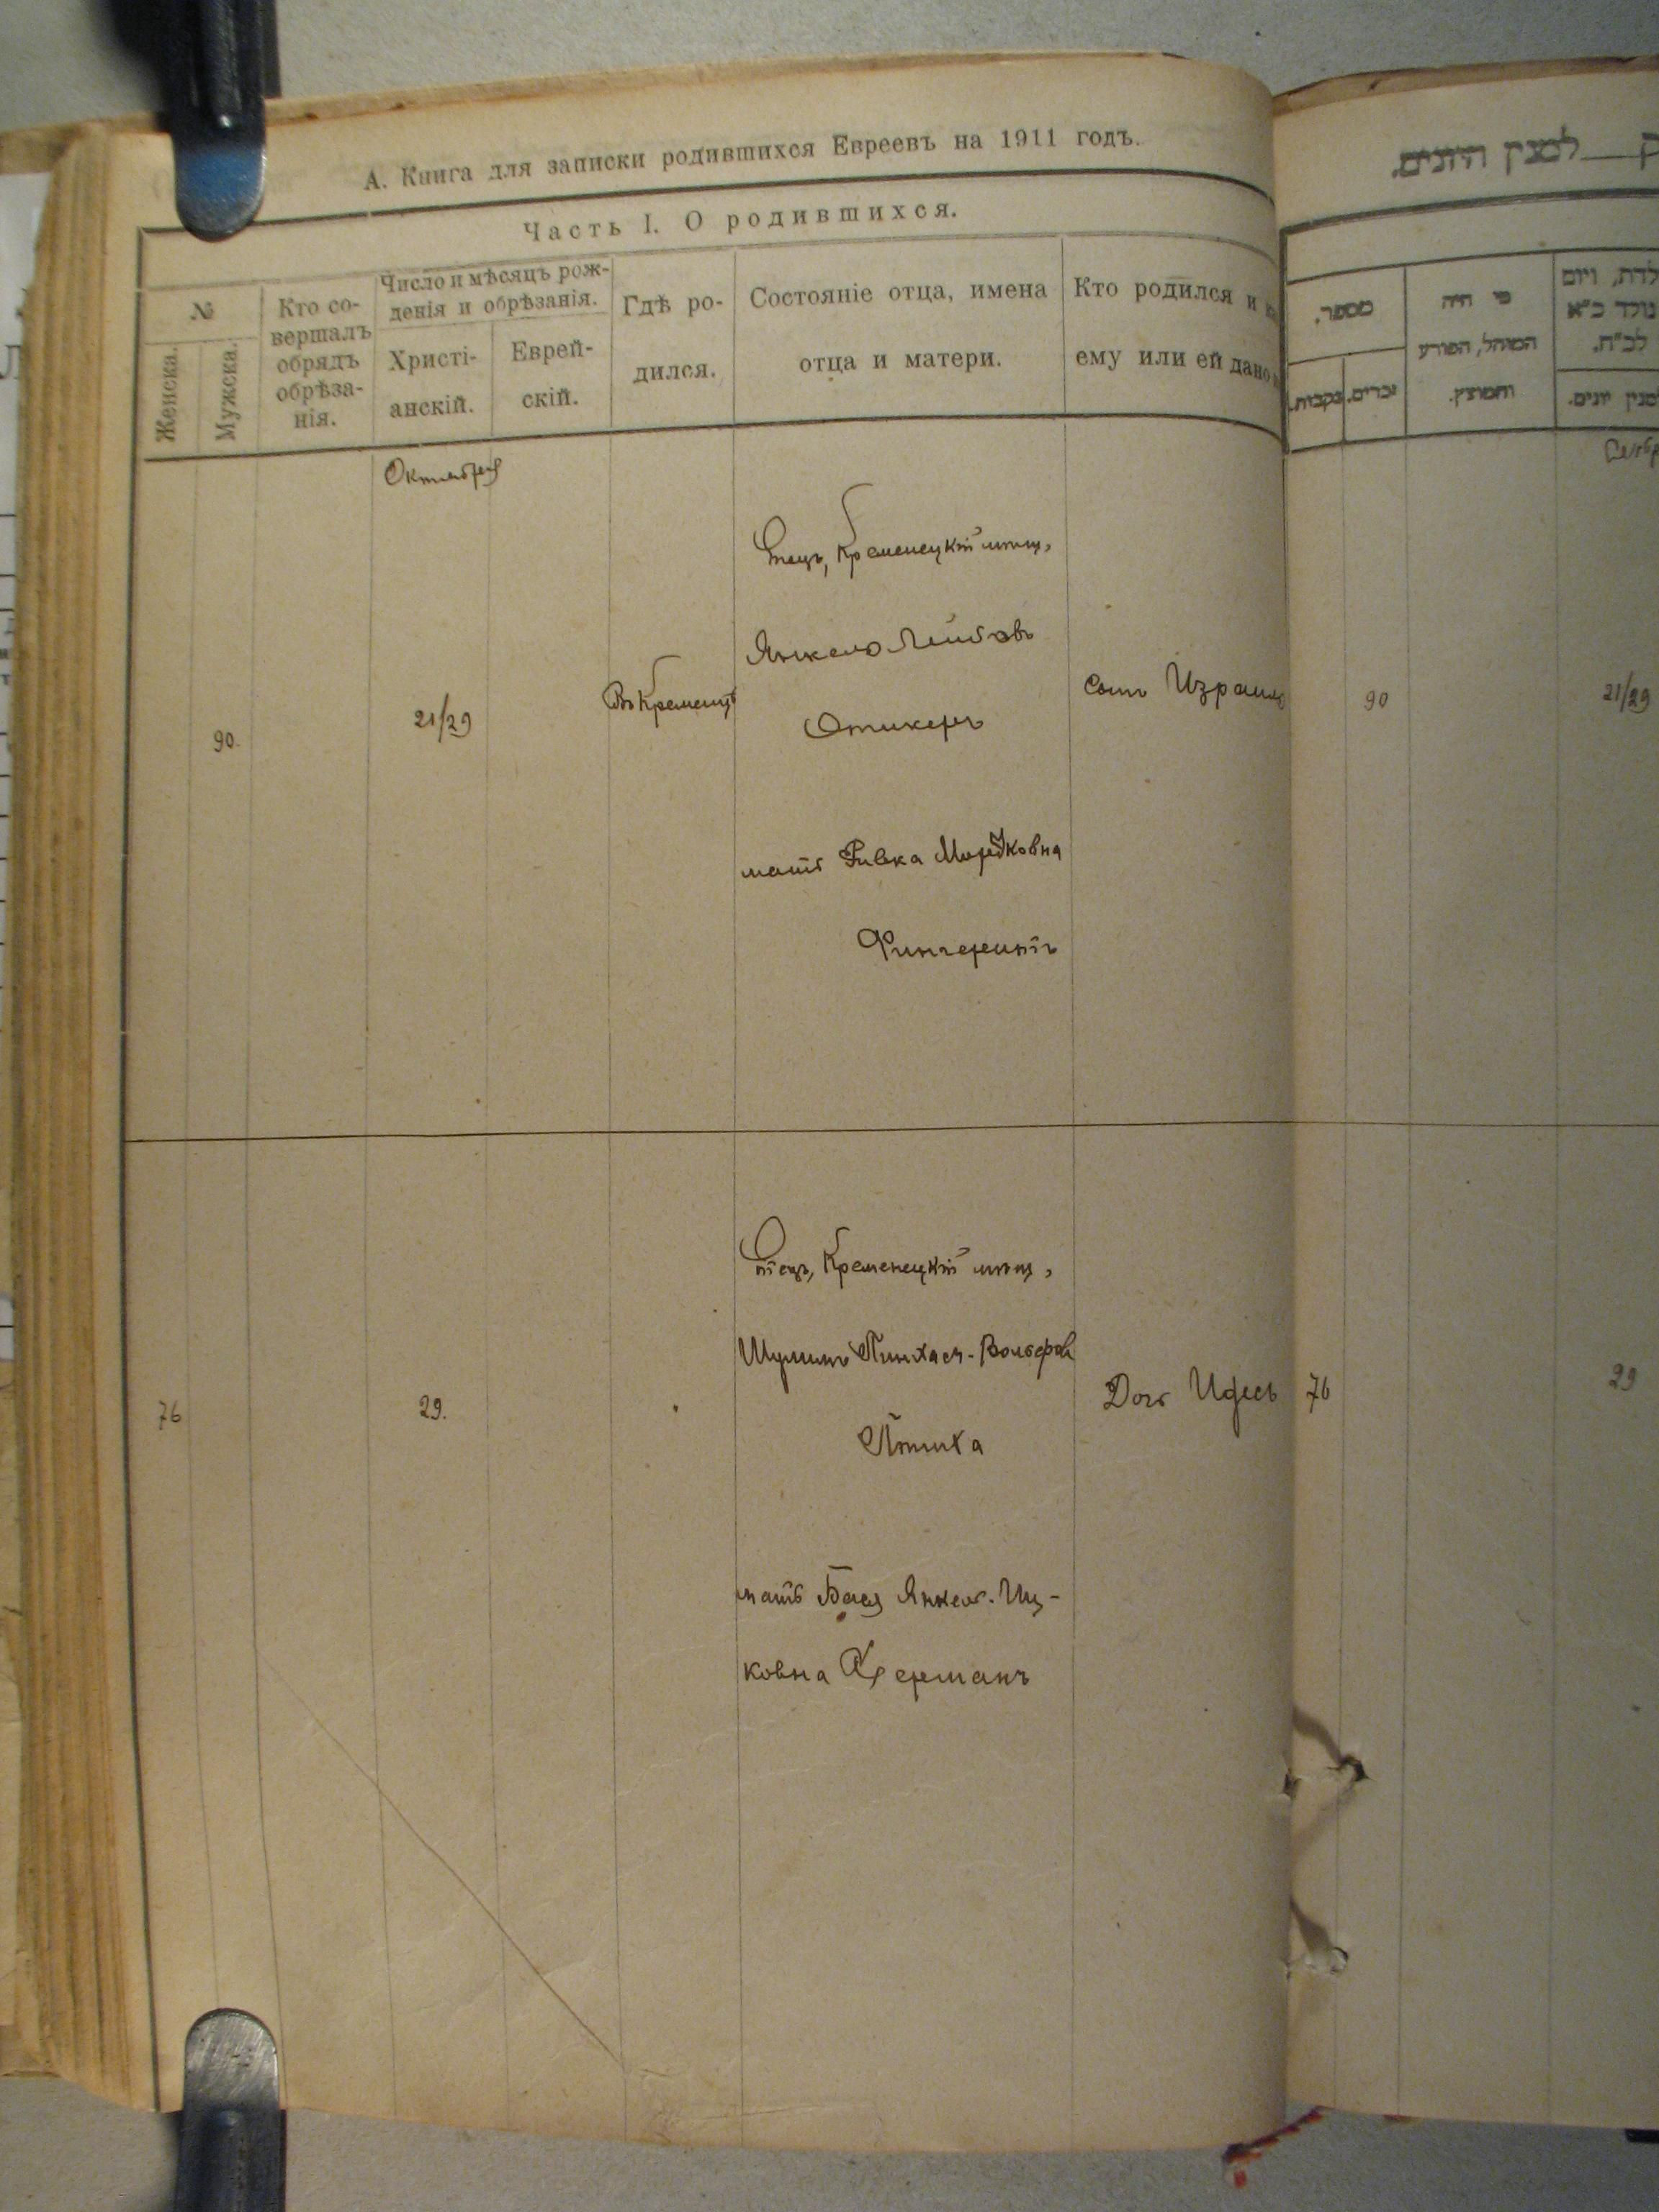 А. Книга для записки родившихся Евреевъ на 1911 годъ.
Часть I. О родившихся.
№
Женска.
Мужска.
Кто со-
вершалъ
обрядъ
обрѣза-
нія.
Число и мѣсяцъ рож-
денія и обрѣзанія.
Христі-
анскій.
Еврей-
скій.
Гдѣ ро-
дился.
Состояніе отца, имена
отца и матери.
Кто родился и
ему или ей дано
Октября
90.
21/29
Въ Кременцѣ
Отецъ, Кременецкій мѣщ.
Янкель Лейбовъ
Отикеръ
мать Ривка Мордковна
Фингерентъ
Сынъ Израиль
76
29.
Отецъ, Кременецкій мѣщ.
Шулимъ Пинхасъ-Вольфов
Птиха
мать Бася Янкел. Иц-
ковна
Дочь Идесь
למנין היונים.
מספר.
נקבות.
זכרים.
מי היה
המוהל, הפורע
והמוצץ.
לדת, ויום
נולד כ״א
לב״ח.
יונים.
90
21/29
76
29